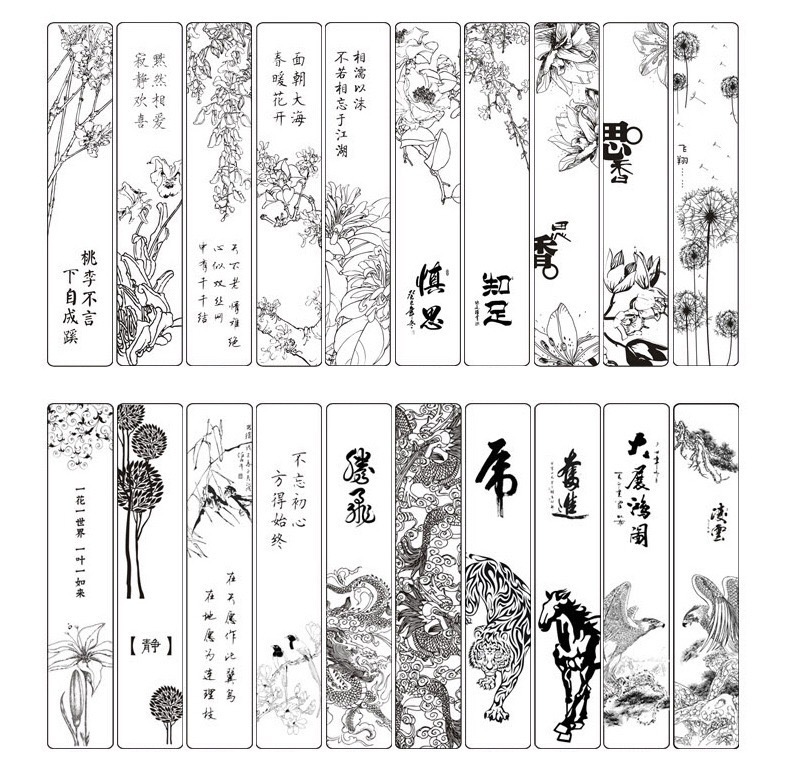 桃李不言
下自成蹊
黙然相爱
寂静欢喜
天不老 情难绝
心似双丝网
中有千千结
面朝大海
春暖花开
相濡以沫
不若相忘于江湖
慎思
知足
思
香
思
香
飞翔......
一花一世界 一叶一如来
【静】
在天愿作比翼鸟
在地愿为连理枝
不忘初心
方得始终
腾飞
虎
奋进
大展鸿图
凌云